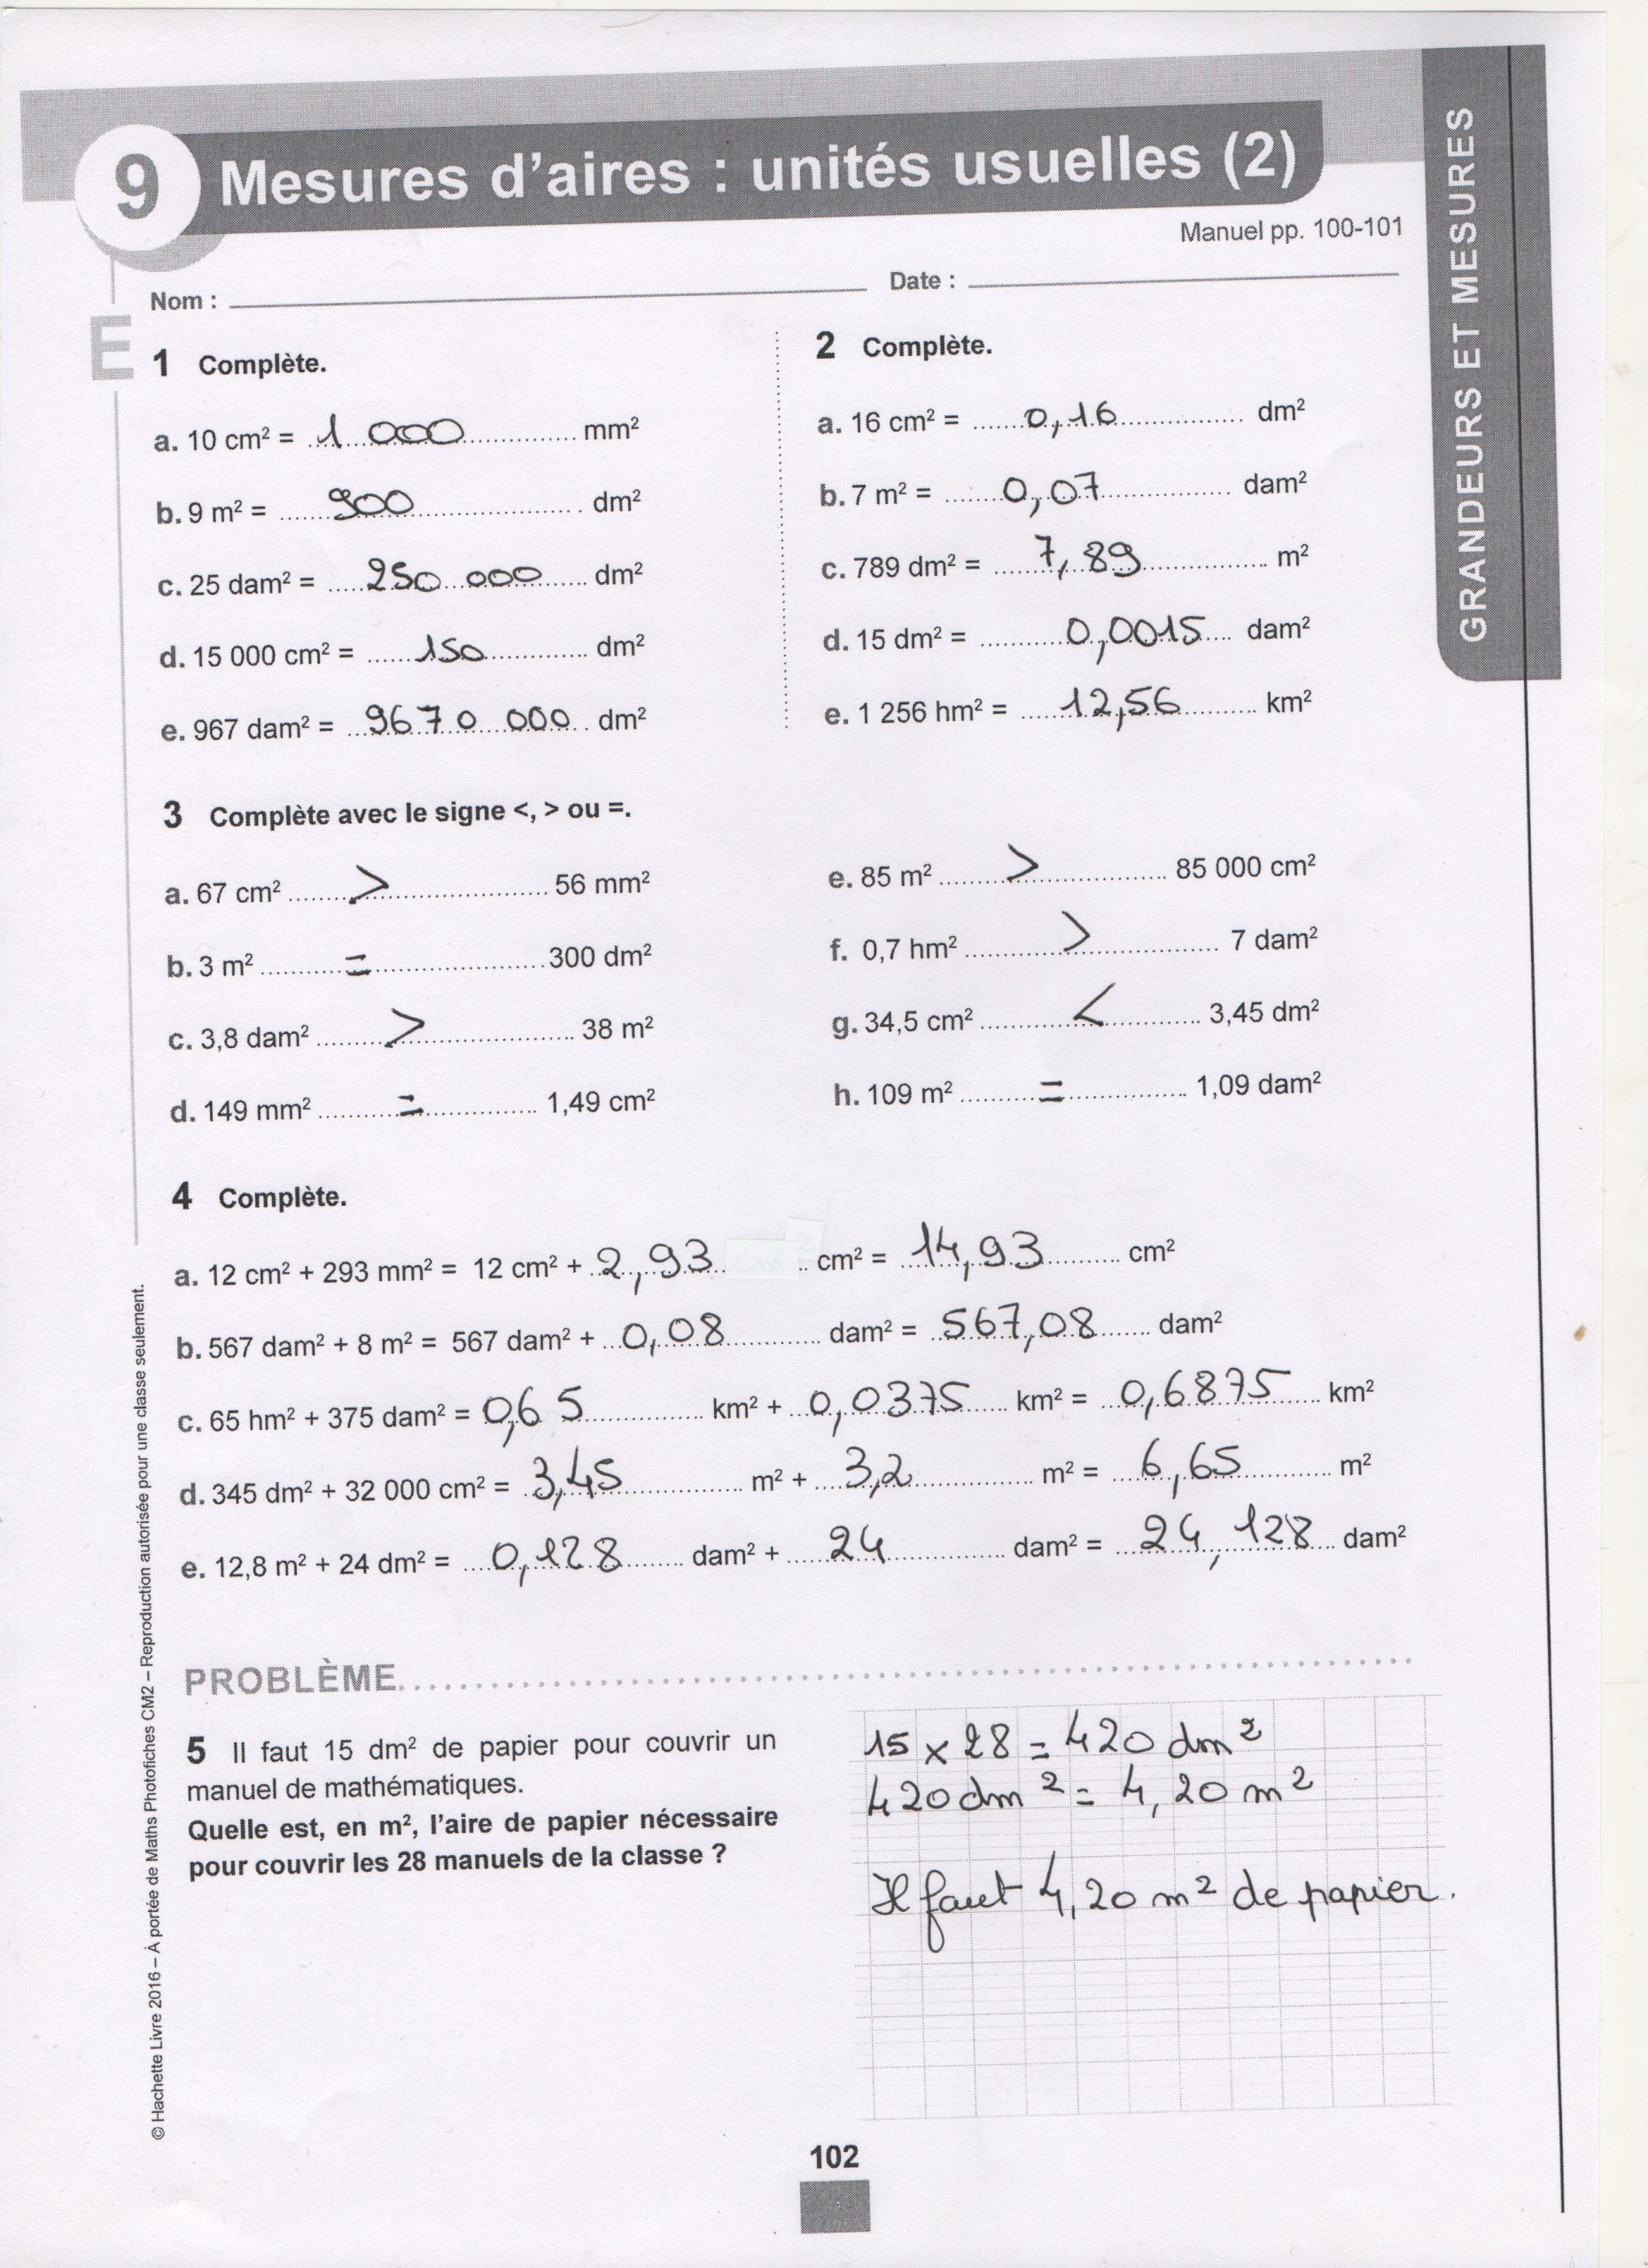 9 Mesures d'aires : unités usuelles (2)
GRANDEURS ET MESURES
Manuel pp. 100-101
Nom : Date :
E
1 Complète.
a. 10 cm² = 1 000 mm²
b. 9 m² = 900 dm²
c. 25 dam² = 250 000 dm²
d. 15 000 cm² = 150 dm²
e. 967 dam² = 9670 000 dm²
2 Complète.
a. 16 cm² = 0,16 dm²
b. 7 m² = 0,07 dam²
c. 789 dm² = 7,89 m²
d. 15 dm² = 0,0015 dam²
e. 1 256 hm² = 12,56 km²
3 Complète avec le signe <, > ou =.
a. 67 cm² > 56 mm²
b. 3 m² = 300 dm²
c. 3,8 dam² > 38 m²
d. 149 mm² = 1,49 cm²
e. 85 m² > 85 000 cm²
f. 0,7 hm² > 7 dam²
g. 34,5 cm² < 3,45 dm²
h. 109 m² = 1,09 dam²
4 Complète.
a. 12 cm² + 293 mm² = 12 cm² + 2,93 cm² = 14,93 cm²
b. 567 dam² + 8 m² = 567 dam² + 0,08 dam² = 567,08 dam²
c. 65 hm² + 375 dam² = 0,65 km² + 0,0375 km² = 0,6875 km²
d. 345 dm² + 32 000 cm² = 3,45 m² + 3,2 m² = 6,65 m²
e. 12,8 m² + 24 dm² = 0,128 dam² + 24 dam² = 24,128 dam²
PROBLÈME
5 Il faut 15 dm² de papier pour couvrir un
manuel de mathématiques.
Quelle est, en m², l'aire de papier nécessaire
pour couvrir les 28 manuels de la classe ?
15 x 28 = 420 dm²
420 dm² = 4,20 m²
Il faut 4,20 m² de papier.
© Hachette Livre 2016 – À portée de Maths Photofiches CM2 – Reproduction autorisée pour une classe seulement.
102